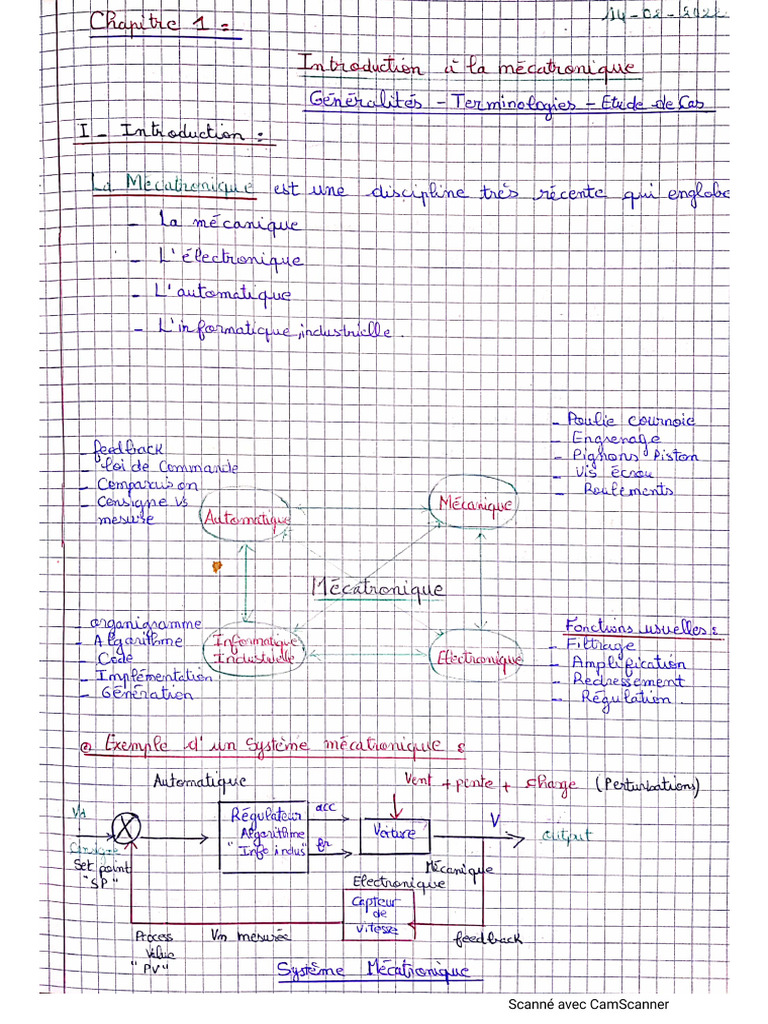 Chapitre 1 :
14-02-2022
Introduction à la mécatronique
Généralités - Terminologies - Etude de Cas
I - Introduction :
La Mécatronique est une discipline très récente qui englobe
- La mécanique
- L'électronique
- L'automatique
- L'informatique industrielle.
- Poulie courroie
- Engrenage
- Pignons Piston
- Vis écrou
- Roulements
- feedback
- loi de Commande
- Comparaison
- Consigne Vs
mesure
Automatique
Mécanique
Mécatronique
- organigramme
- Algorithme
- Code
- Implémentation
- Génération
Informatique
Industrielle
Electronique
Fonctions usuelles :
- Filtrage
- Amplification
- Redressement
- Régulation.
Exemple d'un Système mécatronique :
Automatique
Vent + pente + charge (Perturbations)
Vd
Consigne
Set point
"SP"
Régulateur
Algorithme
"Info indus"
acc
fr
Voiture
V
output
Mécanique
Electronique
Capteur
de
vitesse
Process
Value
"PV"
Vm mesurée
feedback
Système Mécatronique
Scanné avec CamScanner